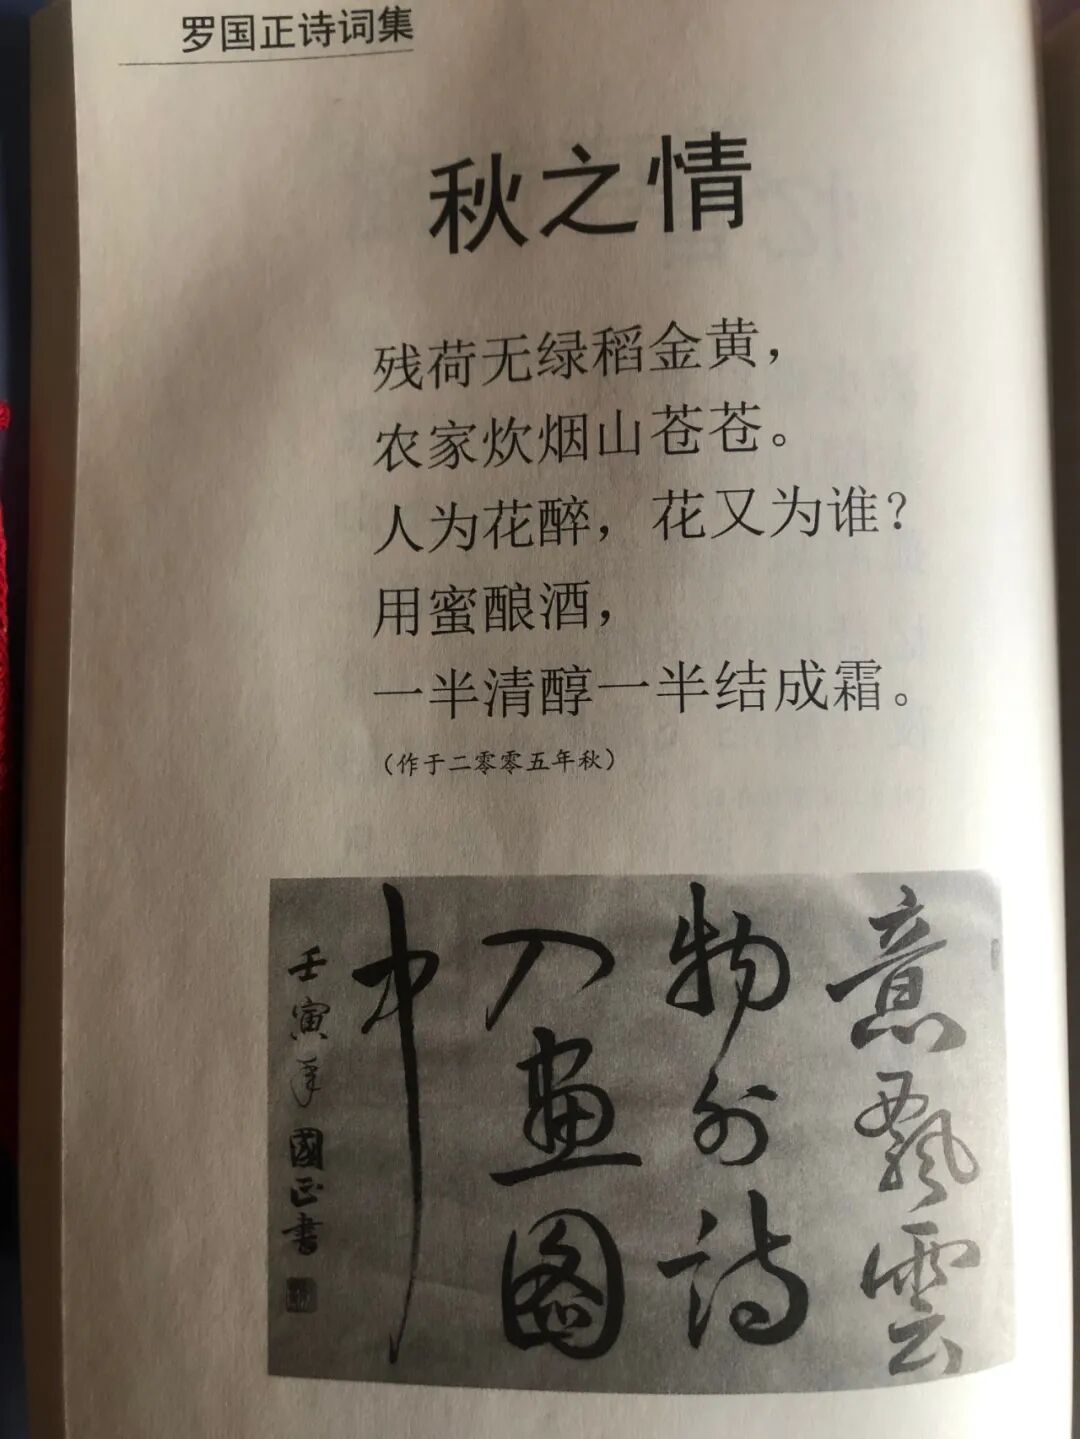 罗国正诗词集
秋之情
残荷无绿稻金黄，
农家炊烟山苍苍。
人为花醉，花又为谁？
用蜜酿酒，
一半清醇一半结成霜。
（作于二零零五年秋）
意飘雲
物外诗
入画图
中
壬寅年國正書